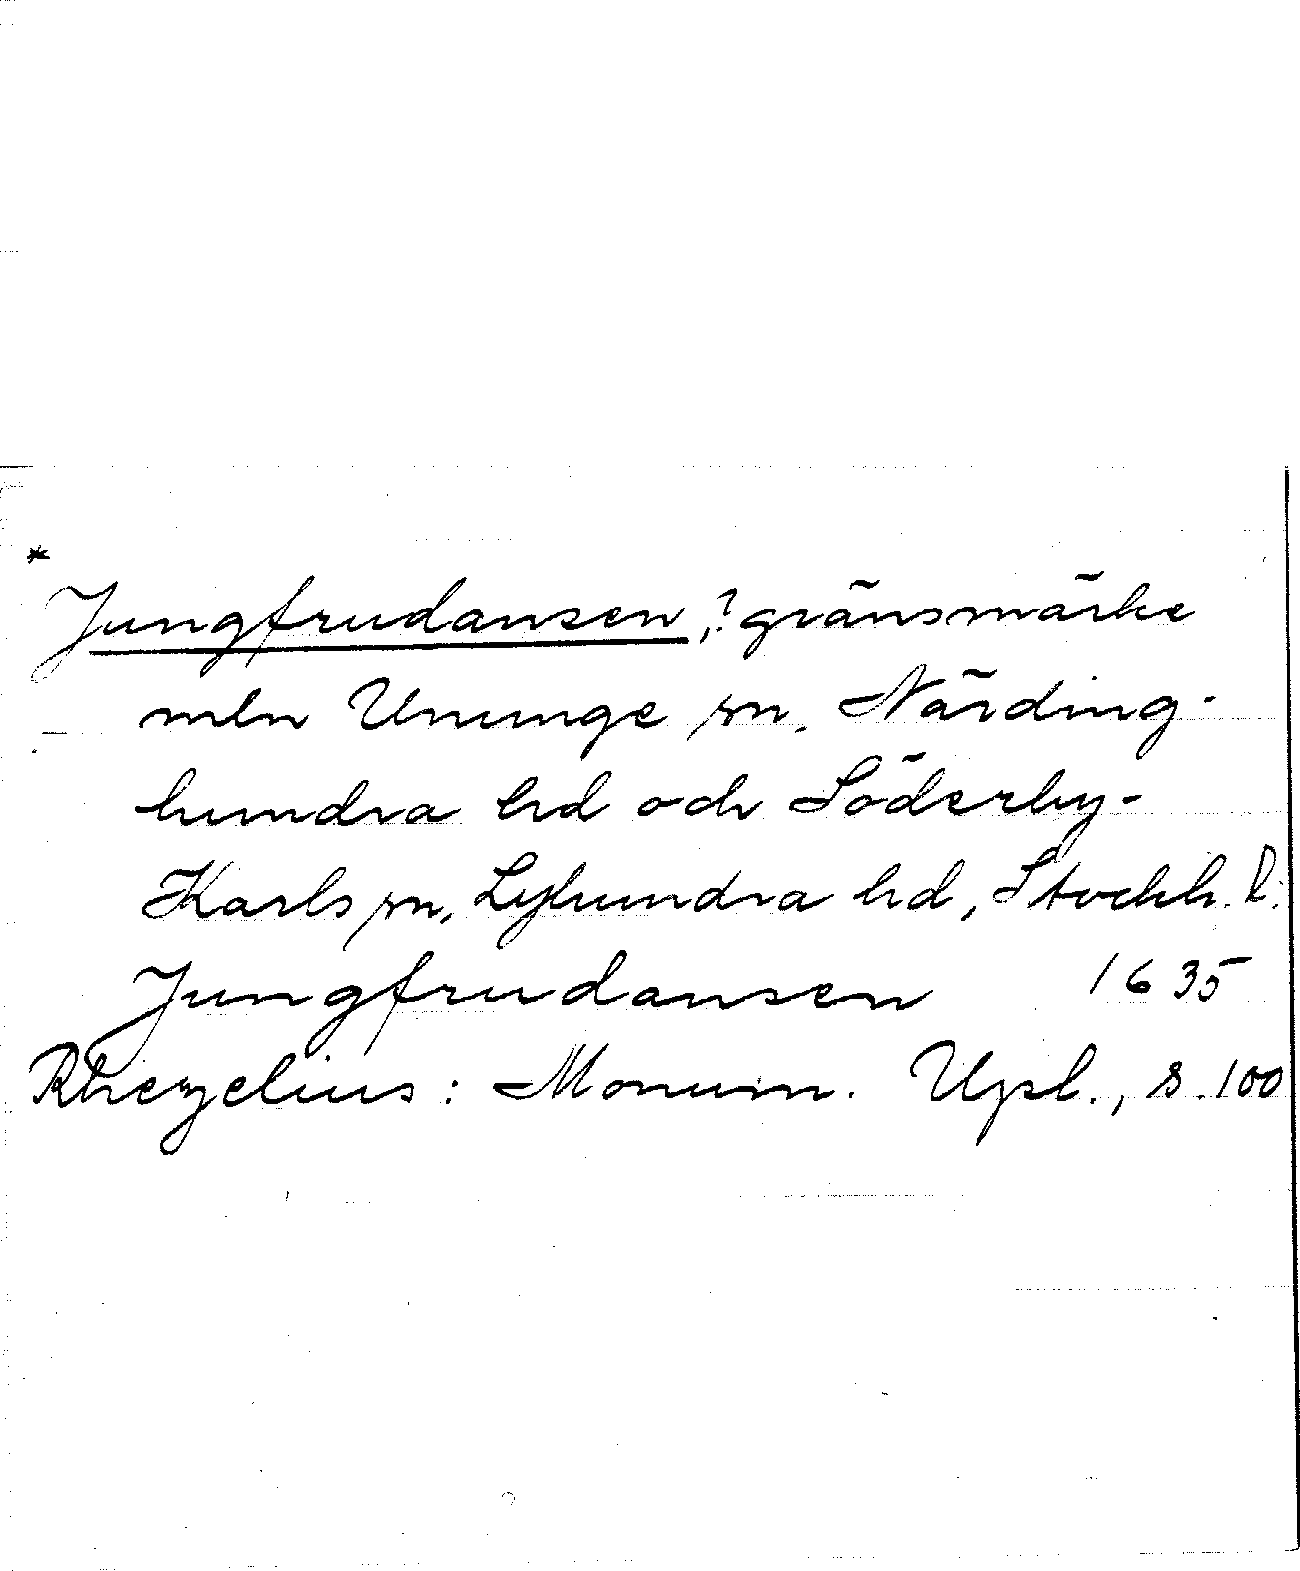 *
Jungfrudansen,? gränsmärke
mln Ununge sn, Närding-
hundra hd och Söderby-
Karls sn, Lyhundra hd, Stockh. l.
Jungfrudansen 1635
Rhezelius: Monum. Upl., s. 100